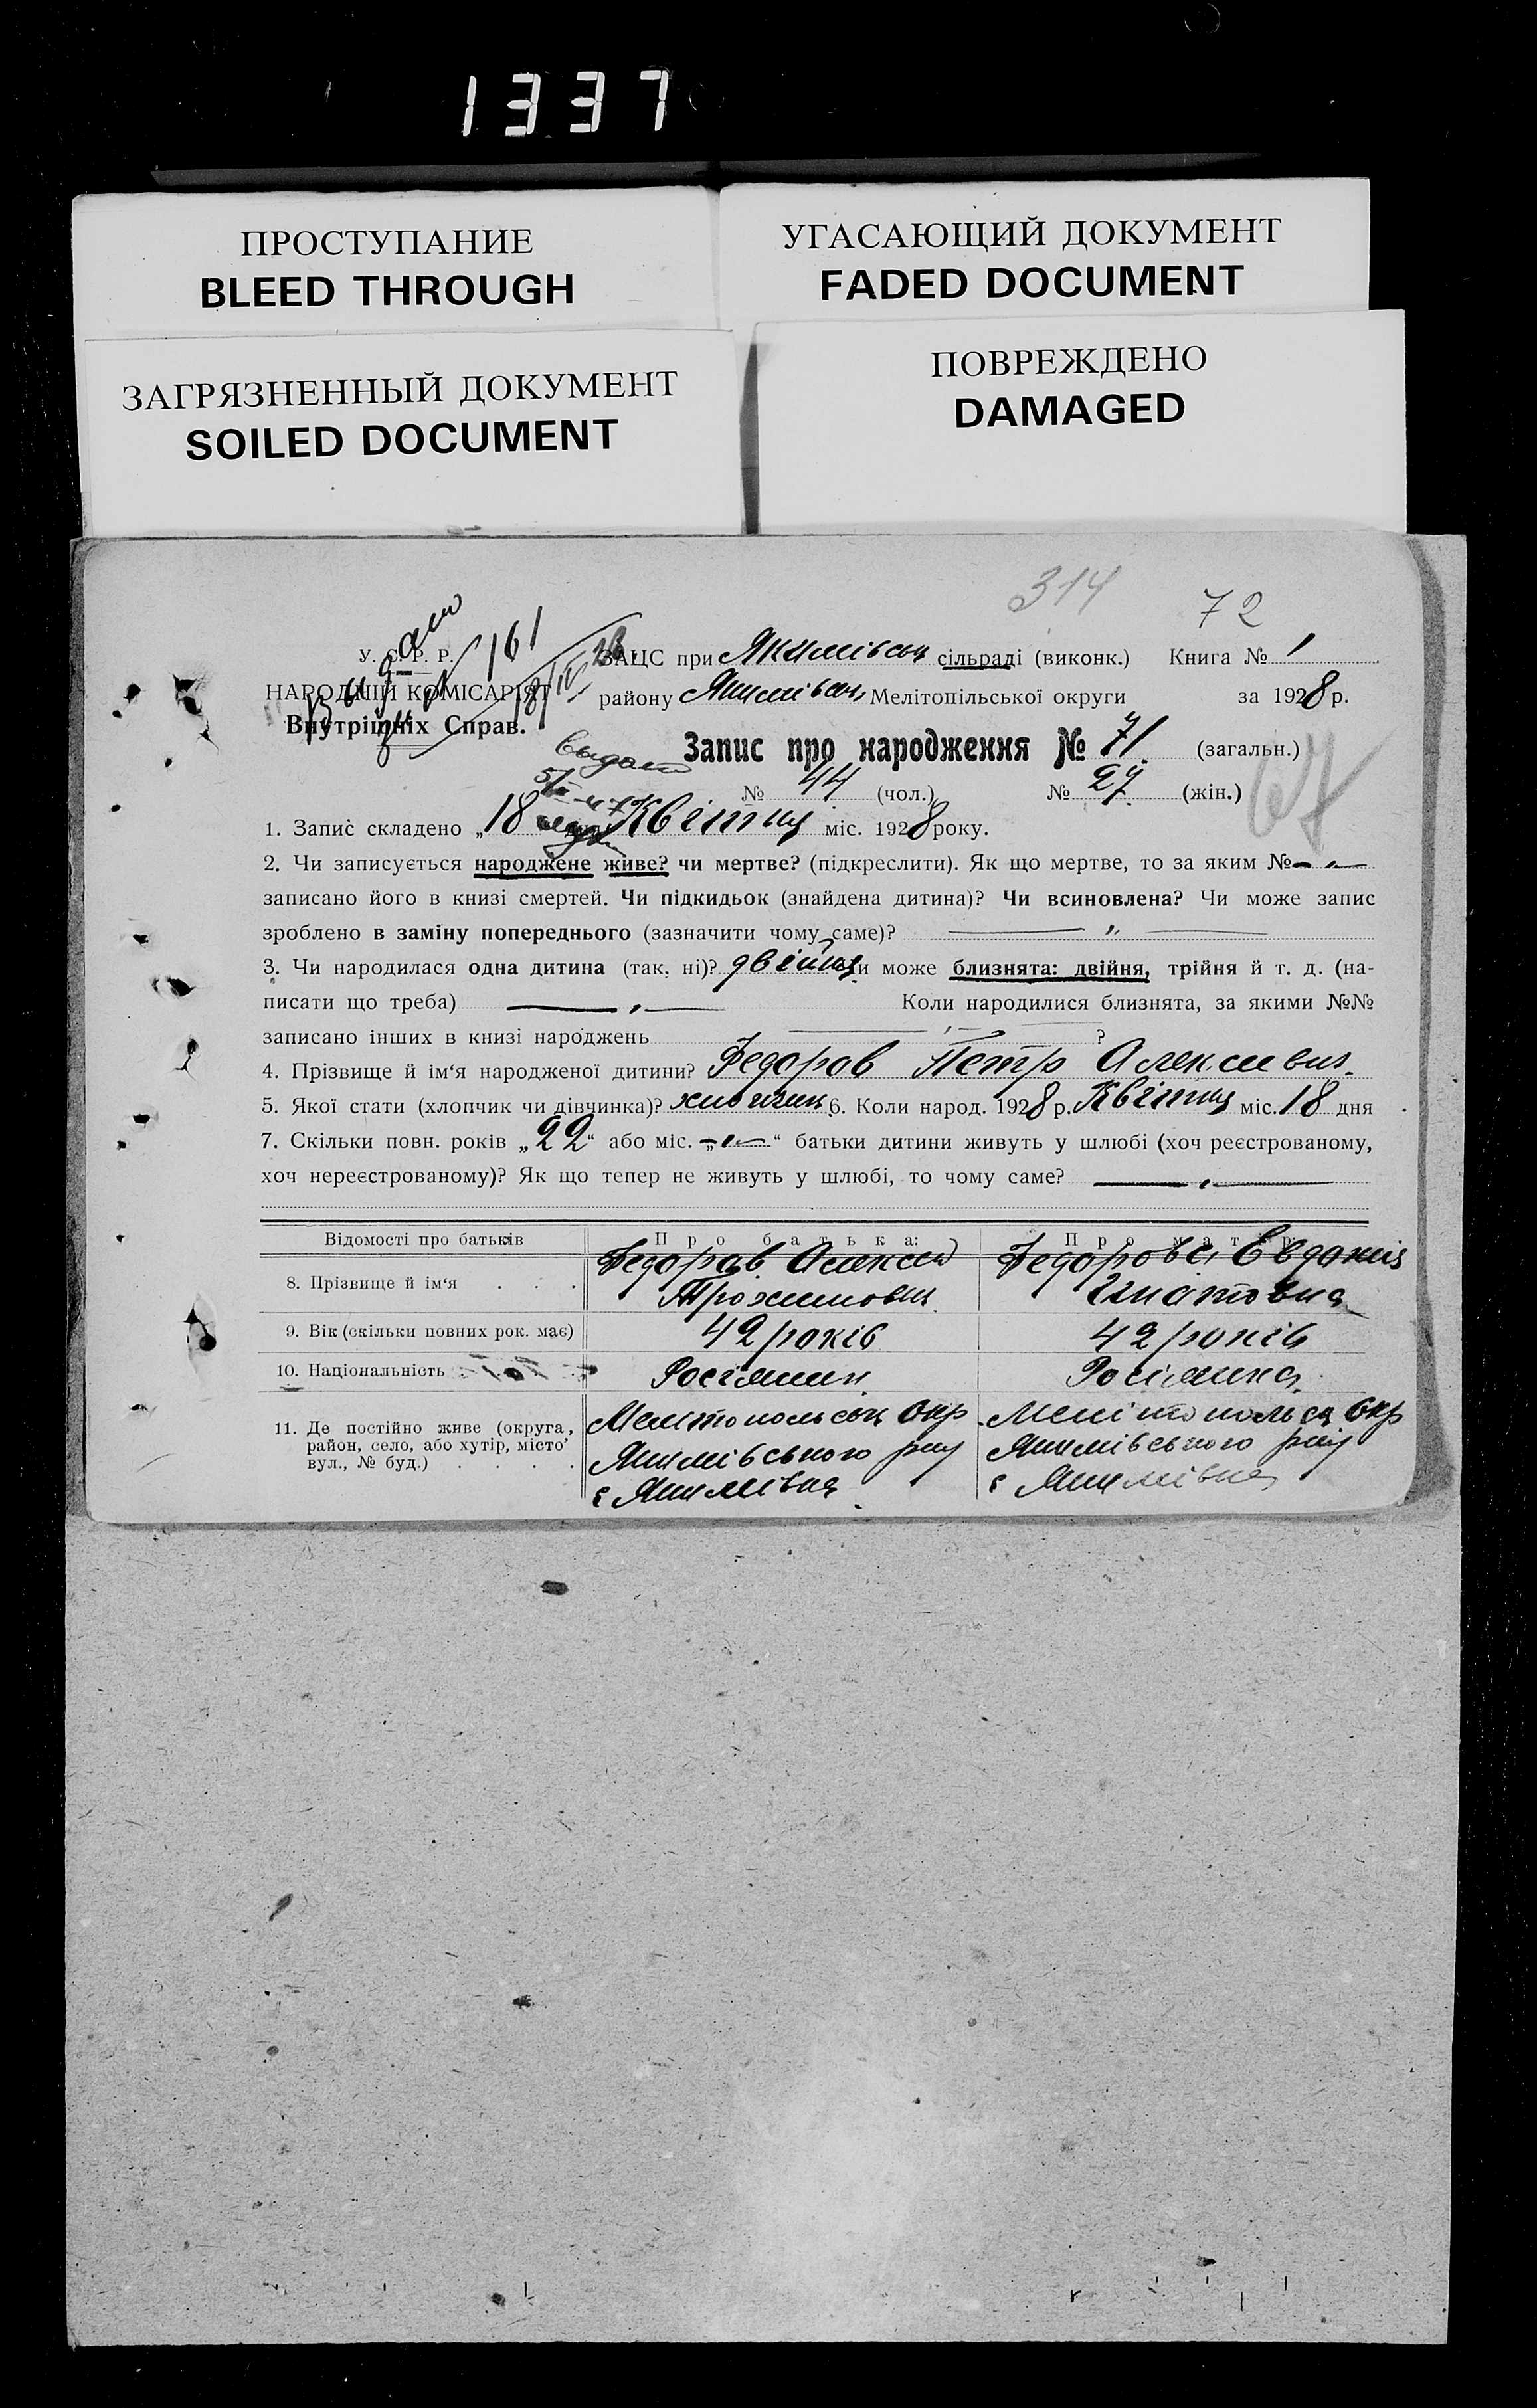 1337
ПРОСТУПАНИЕ
BLEED THROUGH
УГАСАЮЩИЙ ДОКУМЕНТ
FADED DOCUMENT
ЗАГРЯЗНЕННЫЙ ДОКУМЕНТ
SOILED DOCUMENT
ПОВРЕЖДЕНО
DAMAGED
314
72
161
У. С. Р. Р.
НАРОДНІЙ КОМІСАРІЯТ
Внутрішніх Справ.
ЗАЦС при Якимівськ сільраді (виконк.) Книга № 1
району Якимівськ, Мелітопільської округи за 1928 р.
Запис про народження № 71 (загальн.)
67
№ 44 (чол.) № 27 (жін.)
1. Запис складено „18 Квітня міс. 1928 року.
2. Чи записується народжене живе? чи мертве? (підкреслити). Як що мертве, то за яким № — „ —
записано його в книзі смертей. Чи підкидьок (знайдена дитина)? Чи всиновлена? Чи може запис
зроблено в заміну попереднього (зазначити чому саме)? — „ —
3. Чи народилася одна дитина (так, ні)? двійня чи може близнята: двійня, трійня й т. д. (на-
писати що треба) — „ — Коли народилися близнята, за якими №№
записано інших в книзі народжень — „ — ?
4. Прізвище й ім‘я народженої дитини? Федоров Петр Алексиевич
5. Якої стати (хлопчик чи дівчинка)? хлопчик 6. Коли народ. 1928 р. Квітня міс. 18 дня
7. Скільки повн. років „22“ або міс. „—“ батьки дитини живуть у шлюбі (хоч реєстрованому,
хоч нереєстрованому)? Як що тепер не живуть у шлюбі, то чому саме? — „ —
Відомості про батьків Про батька: Про матір
8. Прізвище й ім‘я . . . Федоров Алексей Трохимович Федорова Евдокия Игнатовна
9. Вік (скільки повних рок. має) 42 років 42 років
10. Національність Росіянин Росіянка
11. Де постійно живе (округа, Мелітопольськ окр Мелітопольск окр
район, село, або хутір, місто Якимівського р-ну Якимівського р-ну
вул., № буд.) . . . . с Якимівка с Якимівка